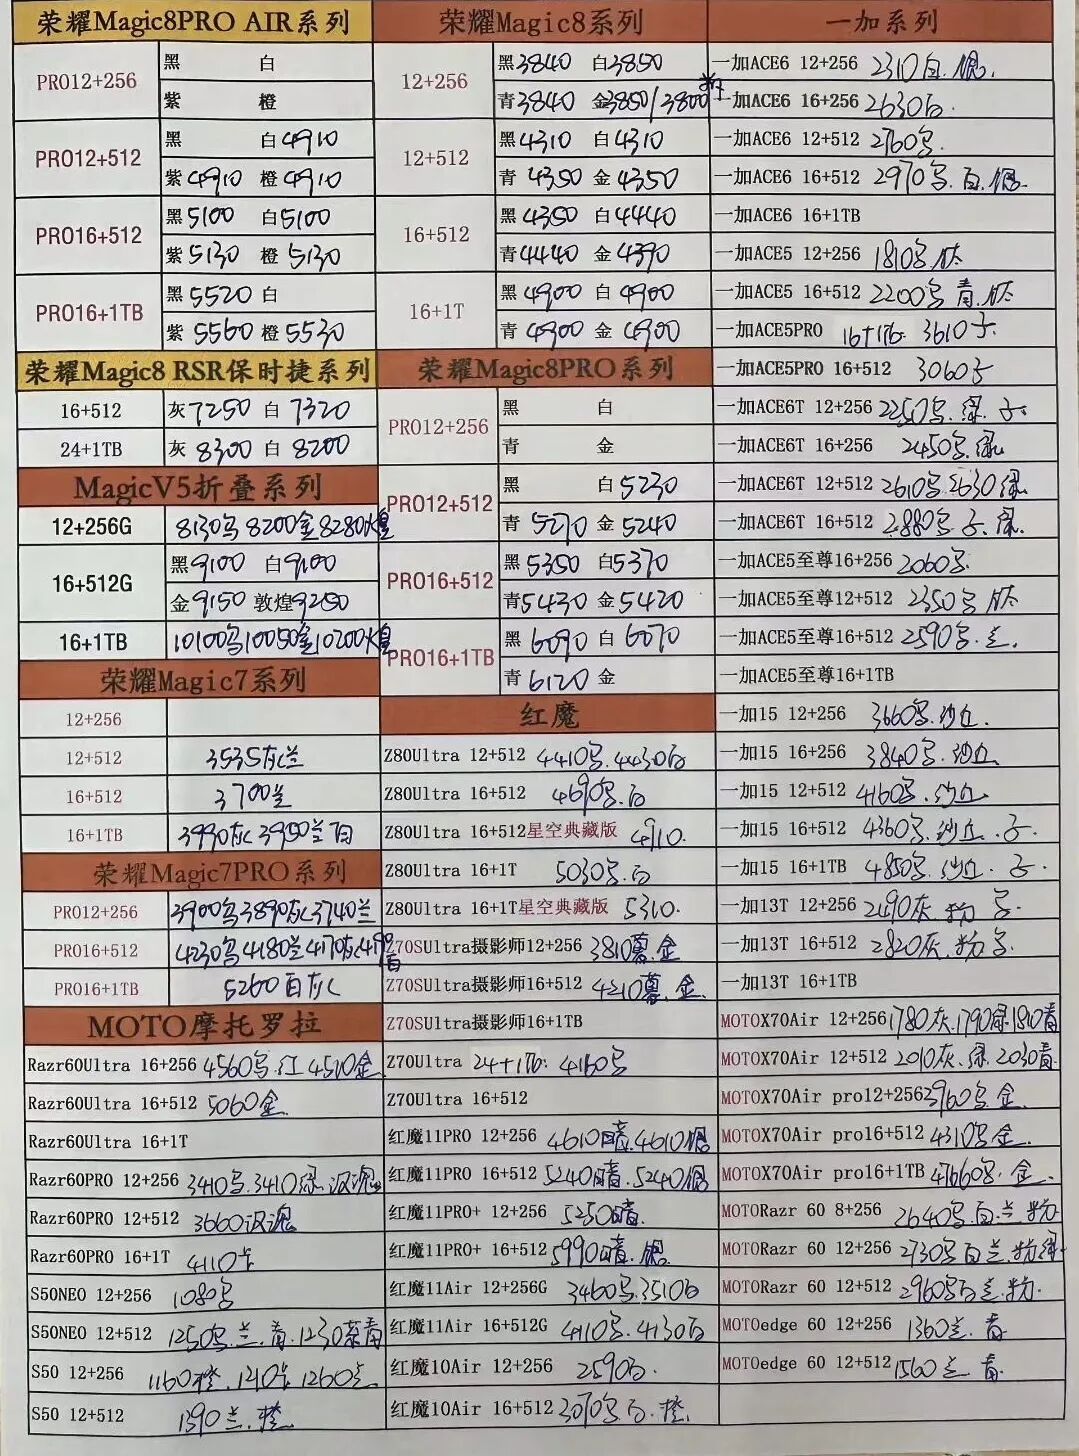 荣耀Magic8PRO AIR系列
PRO12+256 黑 白
紫 橙
PRO12+512 黑 白4910
紫4910 橙4910
PRO16+512 黑5100 白5100
紫5130 橙5130
PRO16+1TB 黑5520 白
紫5560 橙5530
荣耀Magic8 RSR保时捷系列
16+512 灰7250 白7320
24+1TB 灰8300 白8200
MagicV5折叠系列
12+256G 8130乌 8200金 8280火皇
16+512G 黑9100 白9100
金9150 敦煌9250
16+1TB 10100乌10050金10200火皇
荣耀Magic7系列
12+256
12+512 3535灰兰
16+512 3700兰
16+1TB 3990灰 3950兰白
荣耀Magic7PRO系列
PRO12+256 3900乌3890灰3740兰
PRO16+512 4230乌4180兰4170灰4190白
PRO16+1TB 5260白灰
MOTO摩托罗拉
Razr60Ultra 16+256 4560乌.江 4510金
Razr60Ultra 16+512 5060金
Razr60Ultra 16+1T
Razr60PRO 12+256 3410乌.3410绿
Razr60PRO 12+512 3660
Razr60PRO 16+1T 4110卡
S50NEO 12+256 1080乌
S50NEO 12+512 1250乌兰.青.1230茶青
S50 12+256 1160橙.1210卡 1260兰
S50 12+512 1390兰.橙
荣耀Magic8系列
12+256 黑3840 白3850
青3840 金3850/3800
12+512 黑4310 白4310
青4350 金4350
16+512 黑4350 白4440
青4440 金4390
16+1T 黑4900 白4900
青4900 金4900
荣耀Magic8PRO系列
PRO12+256 黑 白
青 金
PRO12+512 黑 白5230
青5270 金5240
PRO16+512 黑5350 白5370
青5430 金5420
PRO16+1TB 黑6090 白6070
青6120 金
红魔
Z80Ultra 12+512 4410乌.4430白
Z80Ultra 16+512 4690乌.白
Z80Ultra 16+512星空典藏版 4910.
Z80Ultra 16+1T 5030乌.白
Z80Ultra 16+1T星空典藏版 5310.
Z70SUltra摄影师12+256 3810暮.金
Z70SUltra摄影师16+512 4210暮.金.
Z70SUltra摄影师16+1TB
Z70Ultra 24+1Tb. 4160乌
Z70Ultra 16+512
红魔11PRO 12+256 4610暗.4610银
红魔11PRO 16+512 5240暗.5240银
红魔11PRO+ 12+256 5250暗.
红魔11PRO+ 16+512 5990暗.银.
红魔11Air 12+256G 3460乌.3510白
红魔11Air 16+512G 4110乌.4130白
红魔10Air 12+256 2590白.
红魔10Air 16+512 3070乌.白.橙.
一加系列
一加ACE6 12+256 2310白.银.
一加ACE6 16+256 2630白.
一加ACE6 12+512 2760乌.
一加ACE6 16+512 2970乌.白.银.
一加ACE6 16+1TB
一加ACE5 12+256 1810乌钛
一加ACE5 16+512 2200乌青.钛
一加ACE5PRO 16+1Tb. 3610子
一加ACE5PRO 16+512 3060子
一加ACE6T 12+256 2250乌.绿.子
一加ACE6T 16+256 2450乌.绿
一加ACE6T 12+512 2610乌.2630绿
一加ACE6T 16+512 2880乌.子.绿.
一加ACE5至尊16+256 2060乌.
一加ACE5至尊12+512 2350乌.钛
一加ACE5至尊16+512 2590乌.兰.
一加ACE5至尊16+1TB
一加15 12+256 3660乌.沙丘.
一加15 16+256 3840乌.沙丘
一加15 12+512 4160乌.沙丘
一加15 16+512 4360乌.沙丘.子.
一加15 16+1TB 4850乌.沙丘.子.
一加13T 12+256 2490灰 粉 乌.
一加13T 16+512 2820灰.粉.乌.
一加13T 16+1TB
MOTOX70Air 12+256 1780灰.1790绿1810青
MOTOX70Air 12+512 2010灰.绿.2030青
MOTOX70Air pro12+256 3960乌.金.
MOTOX70Air pro16+512 4310乌金.
MOTOX70Air pro16+1TB 乌.金.
MOTORazr 60 8+256 2640乌.白.兰 粉
MOTORazr 60 12+256 2730乌白兰.粉绿
MOTORazr 60 12+512 2960乌白兰.粉.
MOTOedge 60 12+256 1360兰.青
MOTOedge 60 12+512 1560兰.青